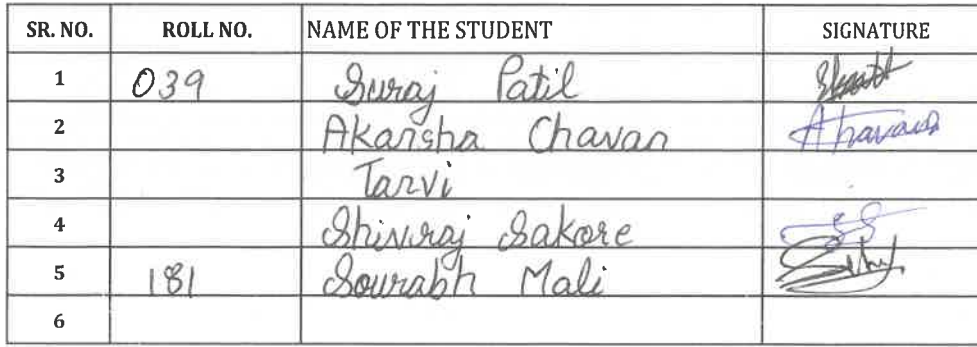 SR. NO. ROLL NO. NAME OF THE STUDENT SIGNATURE
1 039 Suraj Patil
2 Akansha Chavan AChavan
3 Tanvi
4 Shivraj Sakore
5 181 Sourabh Mali
6